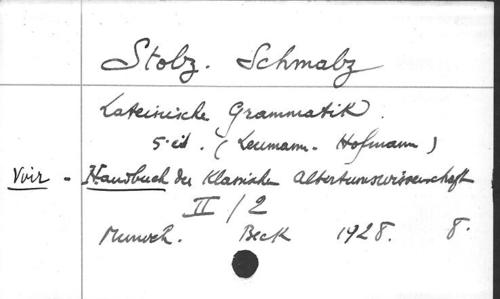 Stolz. Schmalz
Lateinische Grammatik.
5e éd. (Leumann - Hofmann)
Voir - Handbuch der Klassischen Altertumswissenschaft
II/2
Munich. Beck 1928. 8.